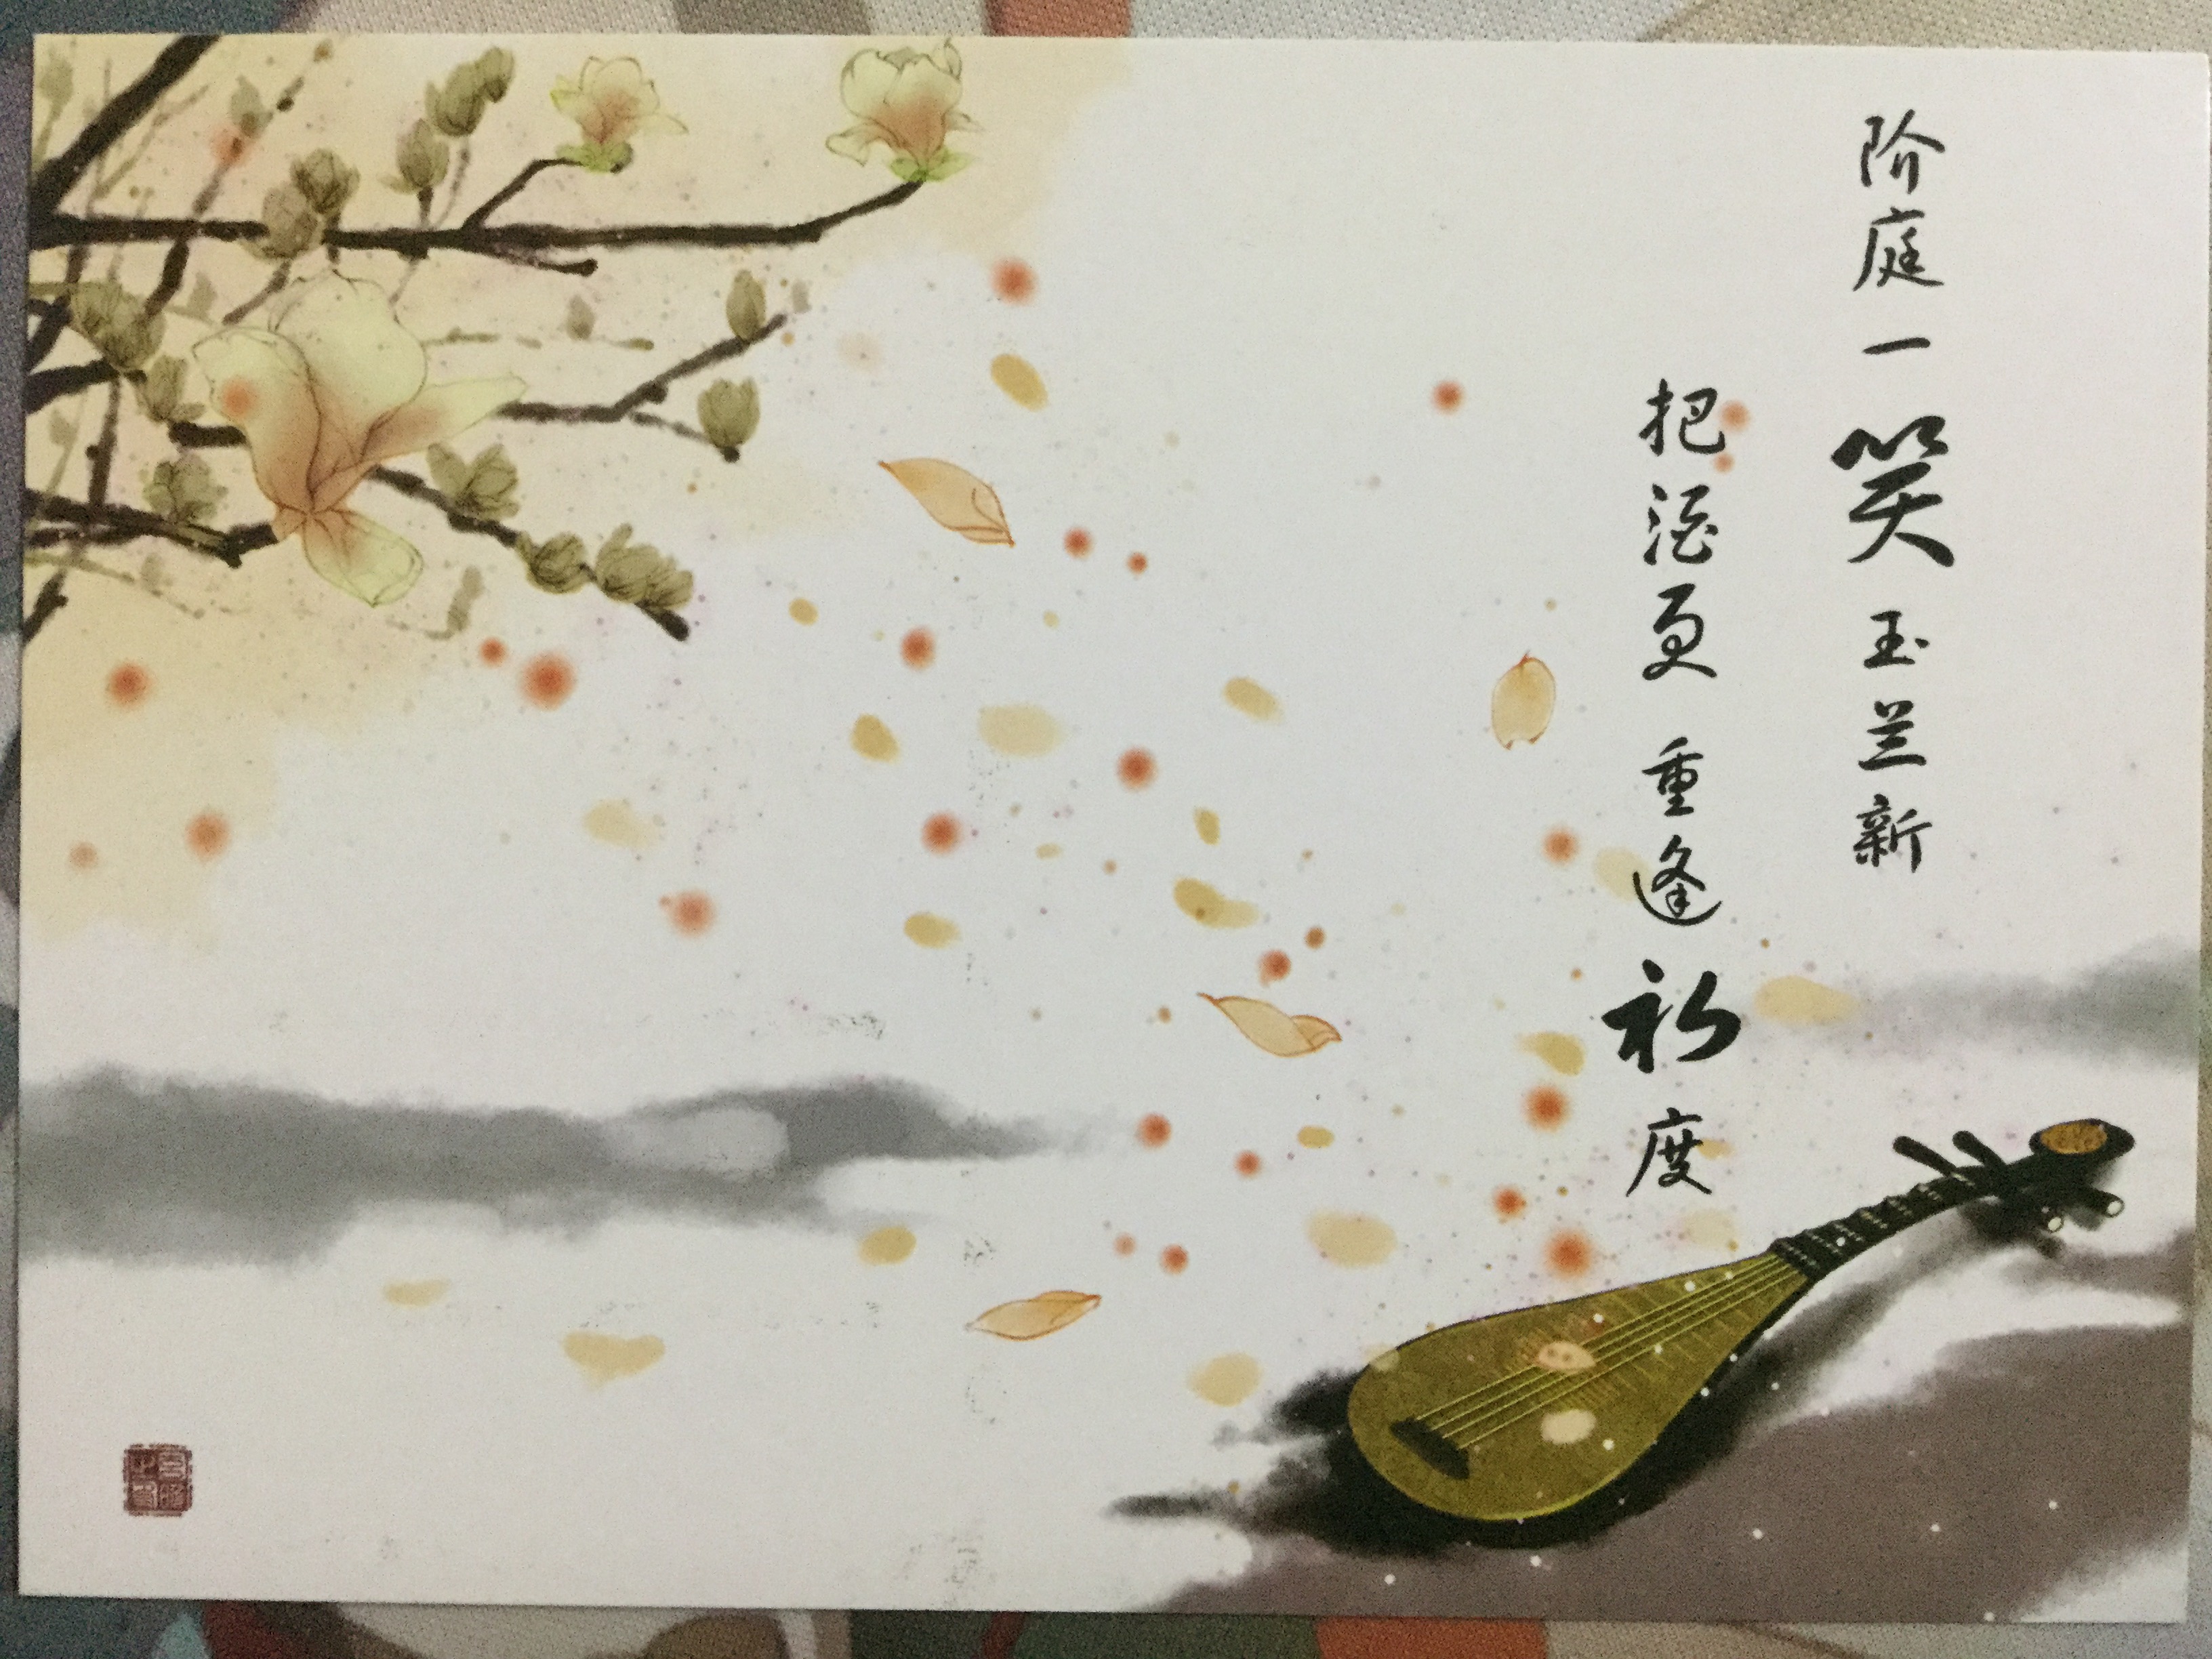 阶庭一笑玉兰新
把酒更重逢初度